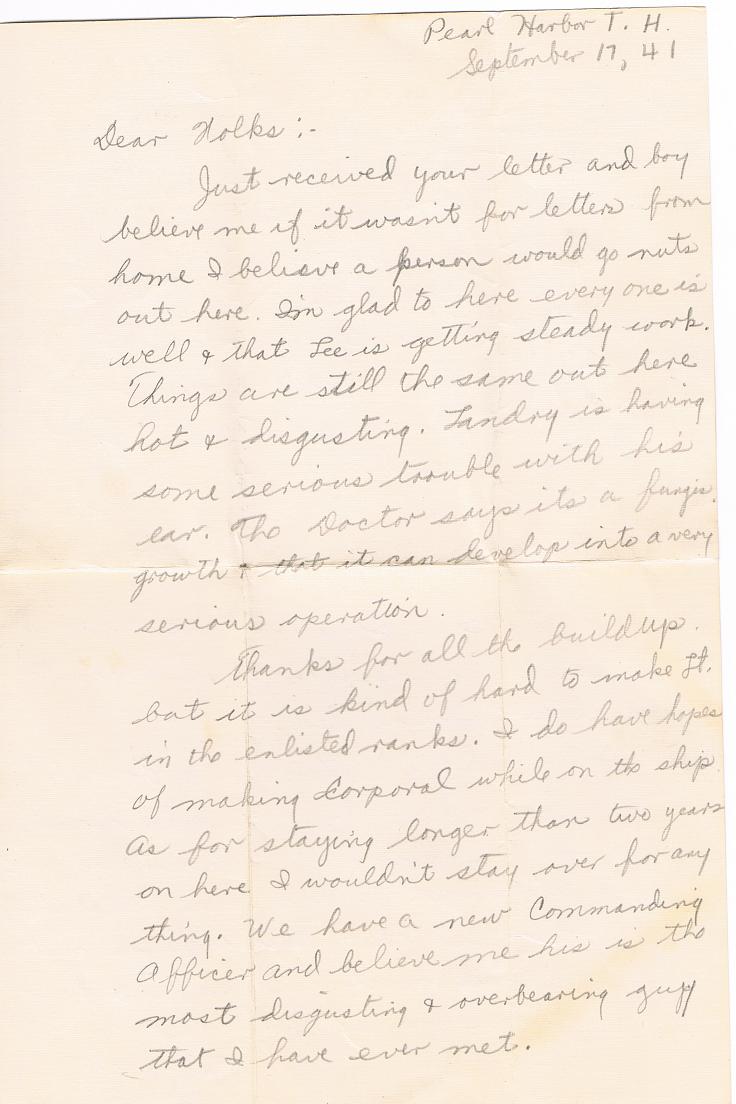 Pearl Harbor T. H.
September 17, 41
Dear Folks :-
Just received your letter and boy
believe me if it wasn't for letters from
home I believe a person would go nuts
out here. I'm glad to here every one is
well & that Lee is getting steady work.
Things are still the same out here
hot & disgusting. Landry is having
some serious trouble with his
ear. The Doctor says its a fungis
growth & that it can develop into a very
serious operation.
Thanks for all the buildup.
but it is kind of hard to make Lt.
in the enlisted ranks. I do have hopes
of making Corporal while on the ship.
As for staying longer than two years
on here I wouldn't stay over for any
thing. We have a new Commanding
Officer and believe me his is the
most disgusting & overbearing guy
that I have ever met.